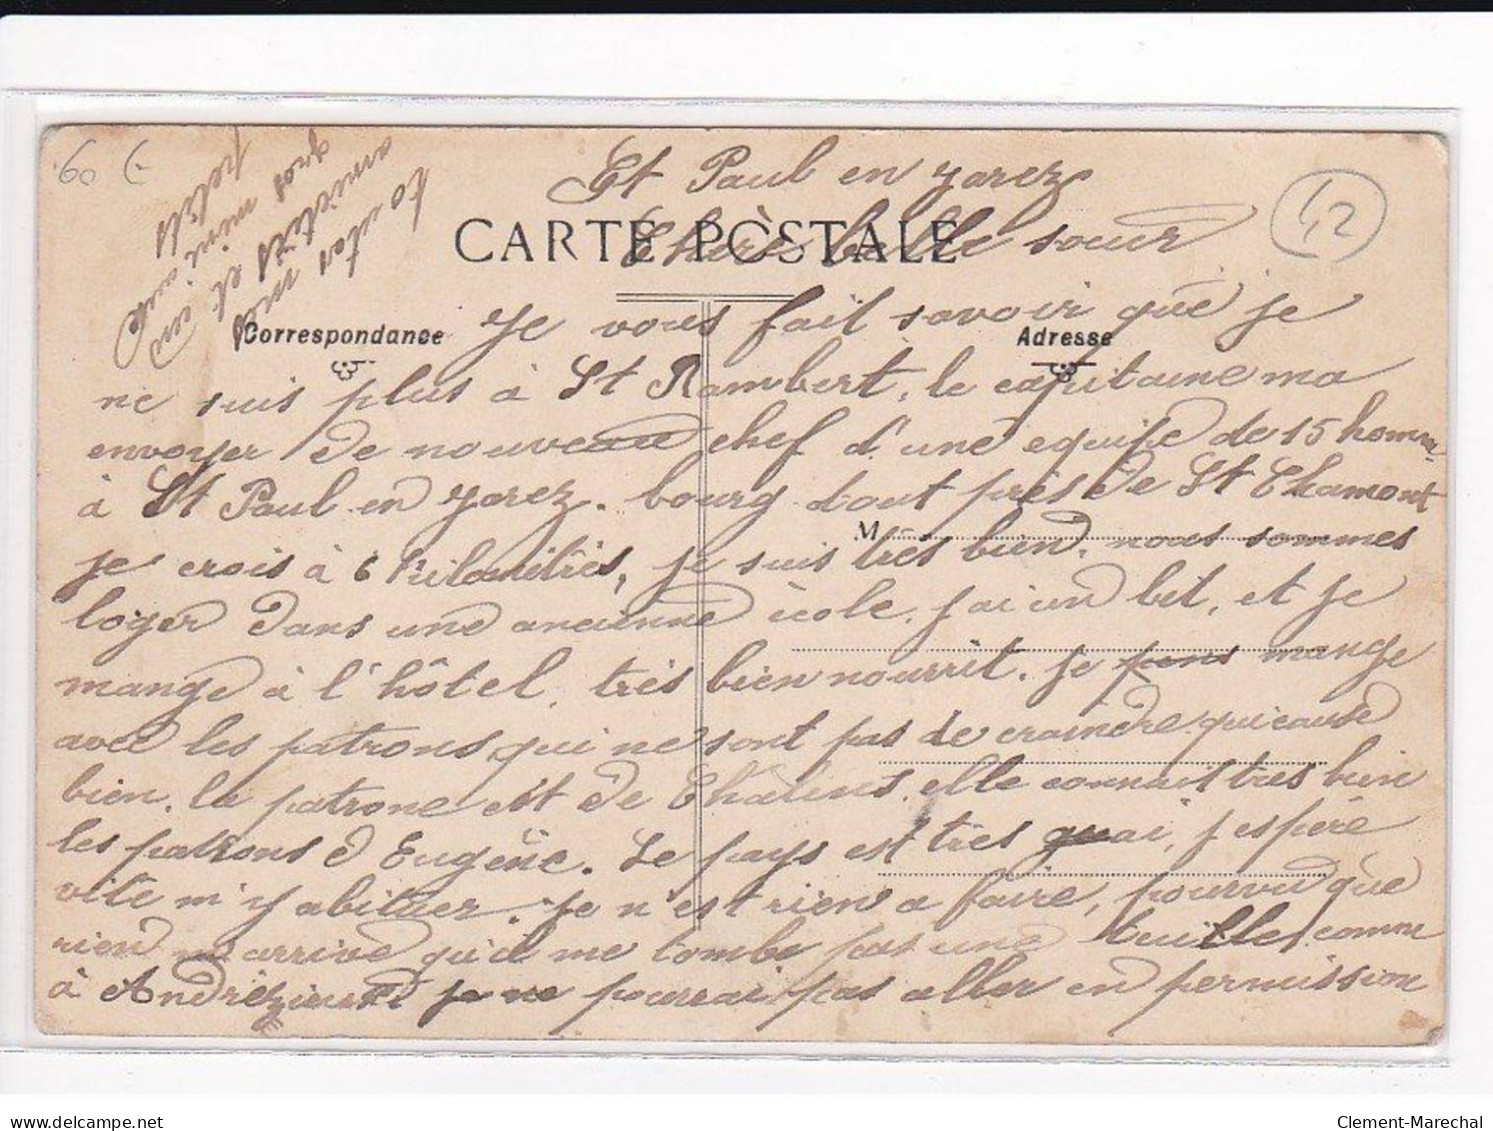 60 €
42
St Paul en Jarez
CARTE POSTALE
Chère belle soeur
Correspondance
Adresse
Je vous fait savoir que je
ne suis plus à St Rambert, le capitaine ma
envoyer de nouveau chef d'une equipe de 15 homm
à St Paul en Jarez. bourg tout près de St Chamont
M
je crois à 6 kilomètres, je suis très bien, nous sommes
loger dans une ancienne école, j'ai un lit, et je
mange à l'hôtel, très bien nourrit. je mange
avec les patrons qui ne sont pas de craindre qui cause
bien. la patrone est de elle connait très bien
les patrons d Eugène. Le pays est très gai, j espère
vite m'y abituer. Je n'est rien a faire, pourvu que
rien m'arrive qu'il me tombe pas une tuille, comme
à Andrézieux je ne pourrai pas aller en permission
amitiés
et
gros
petits